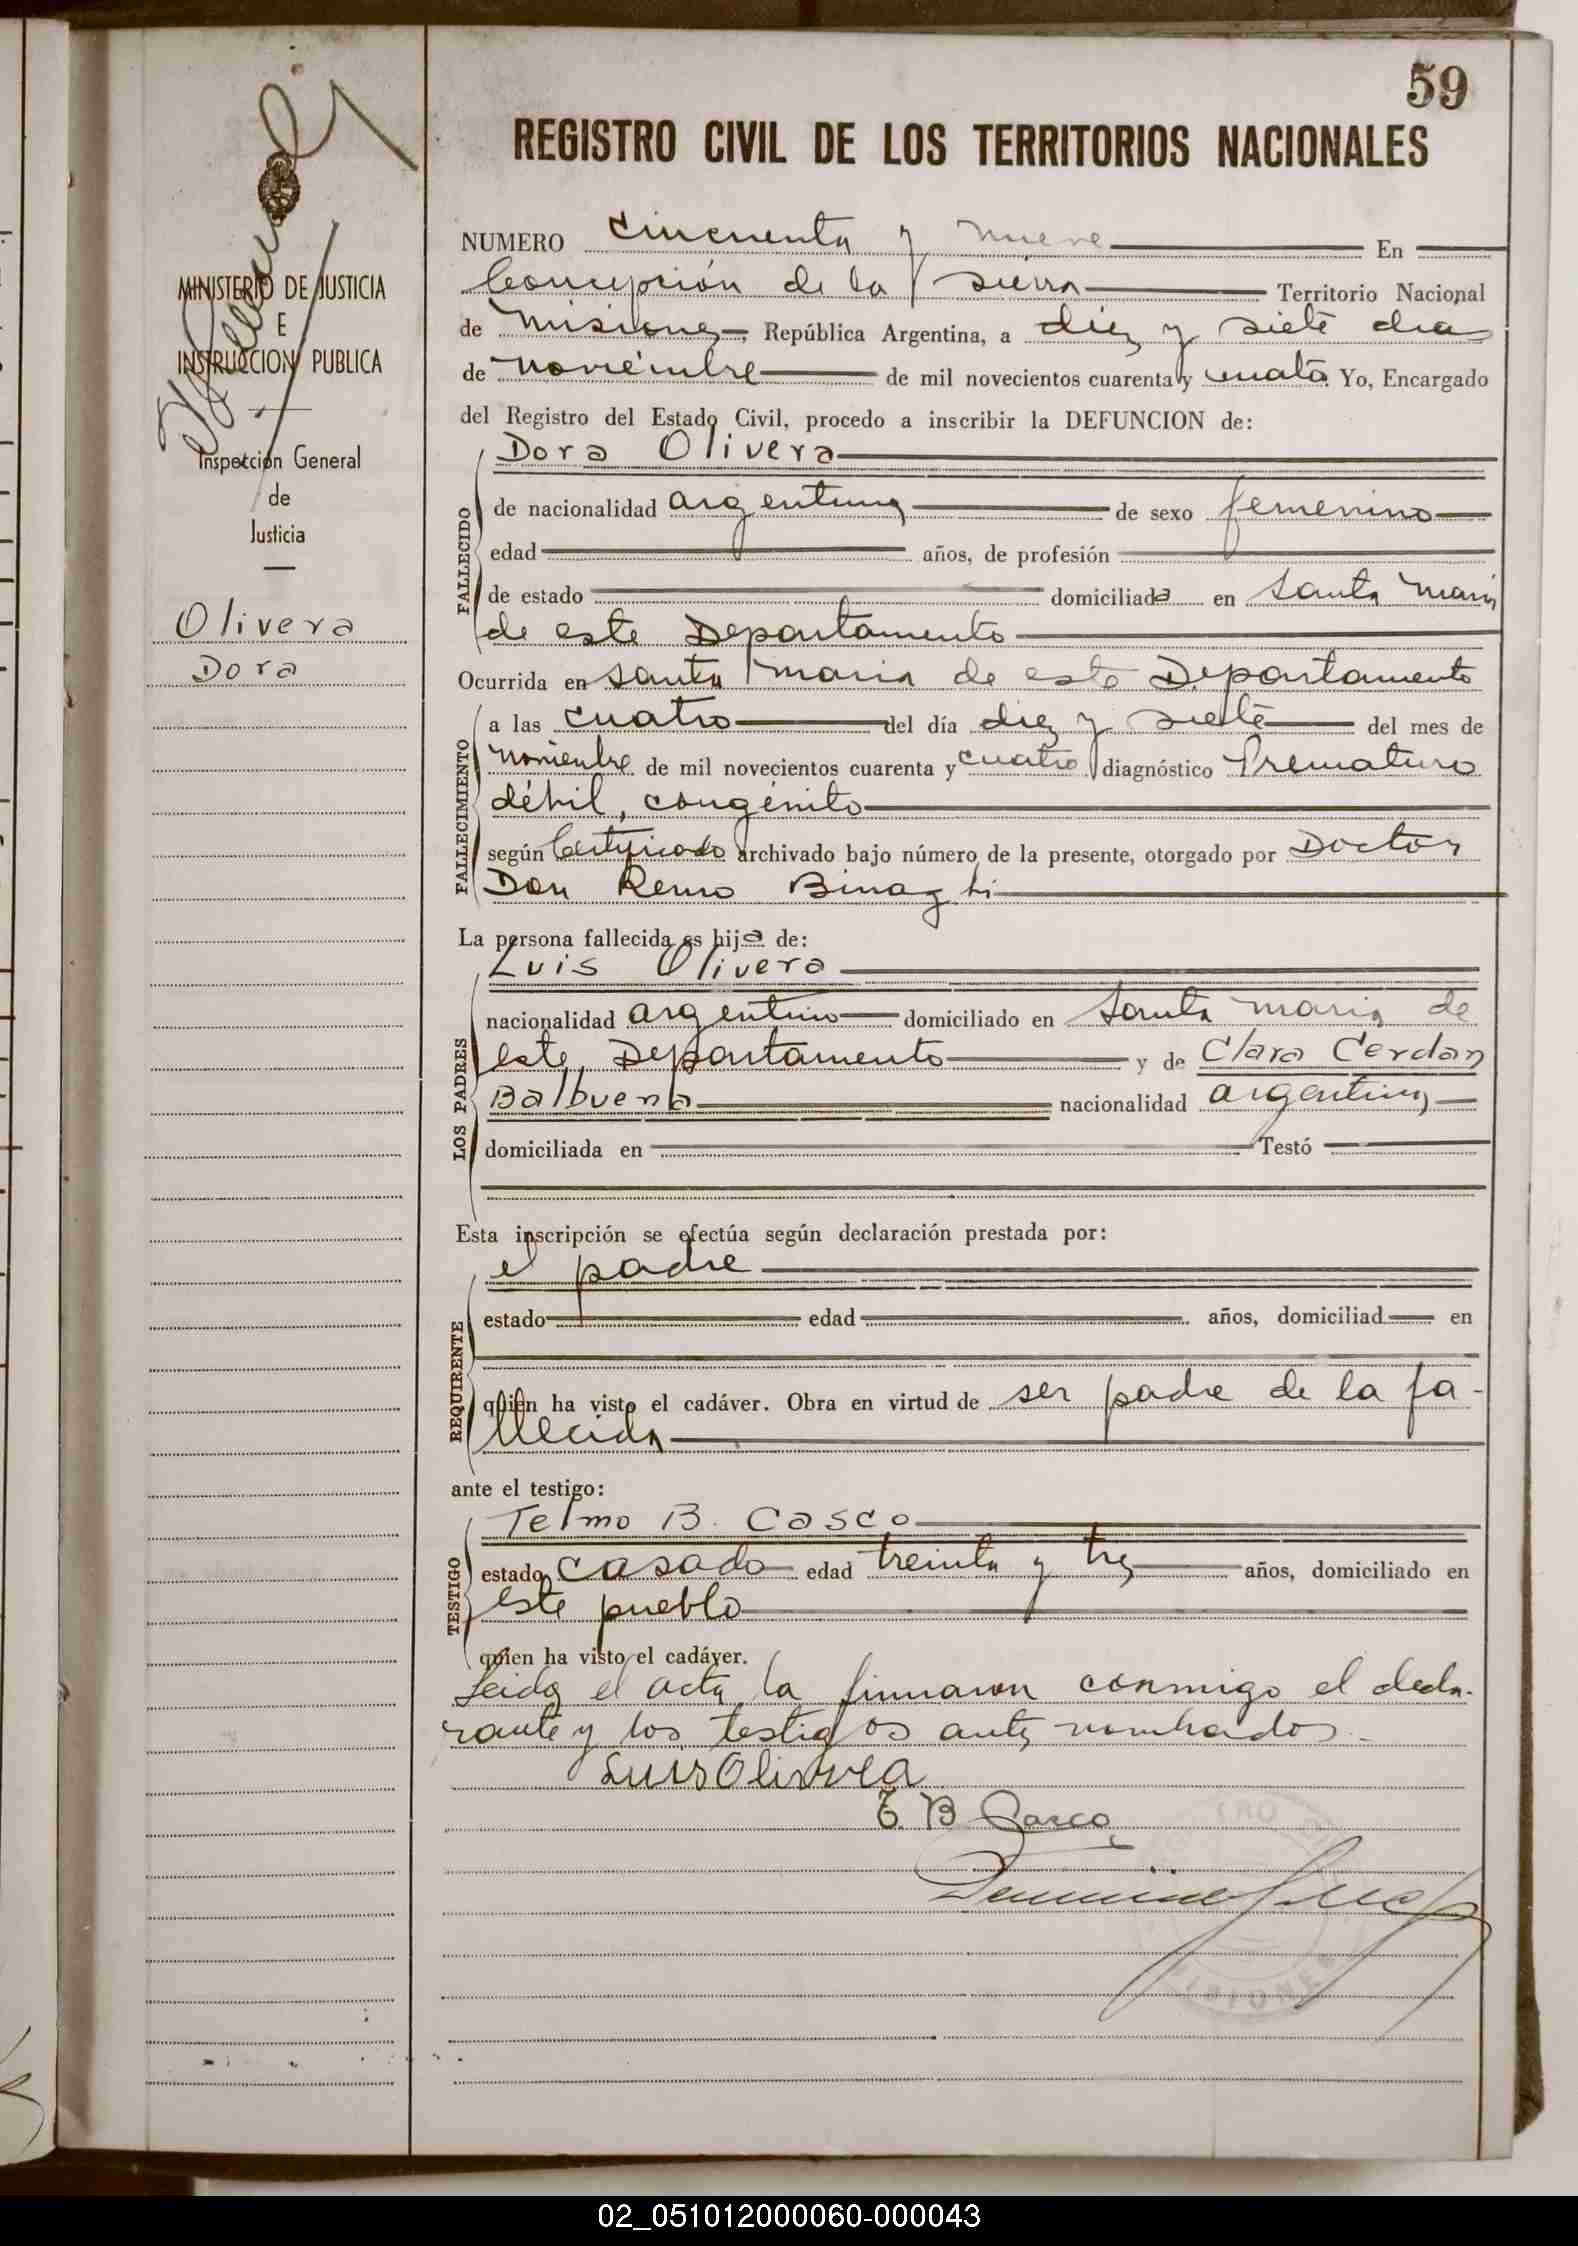 59
REGISTRO CIVIL DE LOS TERRITORIOS NACIONALES
MINISTERIO DE JUSTICIA
E
INSTRUCCION PUBLICA
Inspección General
de
Justicia
Olivera
Dora
NUMERO cincuenta y nueve En
Concepción de la Sierra Territorio Nacional
de Misiones, República Argentina, a diez y siete dias
de noviembre de mil novecientos cuarenta y cuatro Yo, Encargado
del Registro del Estado Civil, procedo a inscribir la DEFUNCION de:
Dora Olivera
FALLECIDO
de nacionalidad argentina de sexo femenino
edad años, de profesión
de estado domiciliada en Santa Maria
de este Departamento
Ocurrida en Santa Maria de este Departamento
FALLECIMIENTO
a las cuatro del día diez y siete del mes de
noviembre de mil novecientos cuarenta y cuatro diagnóstico Prematuro
débil, congénito
según Certificado archivado bajo número de la presente, otorgado por Doctor
Don Remo Binaghi
La persona fallecida es hija de:
Luis Olivera
LOS PADRES
nacionalidad argentino domiciliado en Santa Maria de
este Departamento y de Clara Cerdan
Balbuena nacionalidad argentina
domiciliada en Testó
Esta inscripción se efectúa según declaración prestada por:
el padre
REQUIRENTE
estado edad años, domiciliad en
quien ha visto el cadáver. Obra en virtud de ser padre de la fa-
llecida
ante el testigo:
Telmo B. Casco
TESTIGO
estado casado edad treinta y tres años, domiciliado en
este pueblo
quien ha visto el cadáver.
Leida el acta la firmaron conmigo el decla-
rante y los testigos antes nombrados.
Luis Olivera
T. B. Casco
02_051012000060-000043